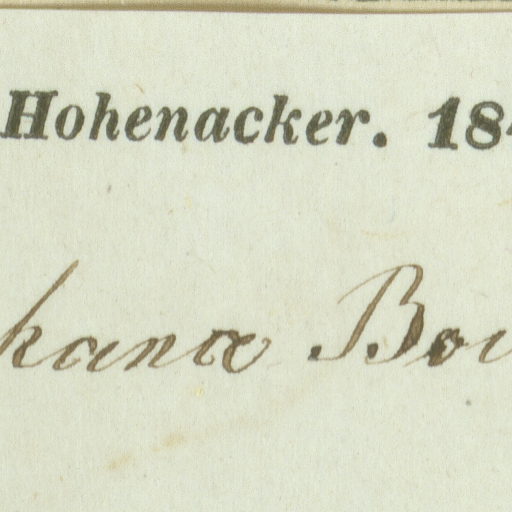 Hohenacker. 184
kana Boi